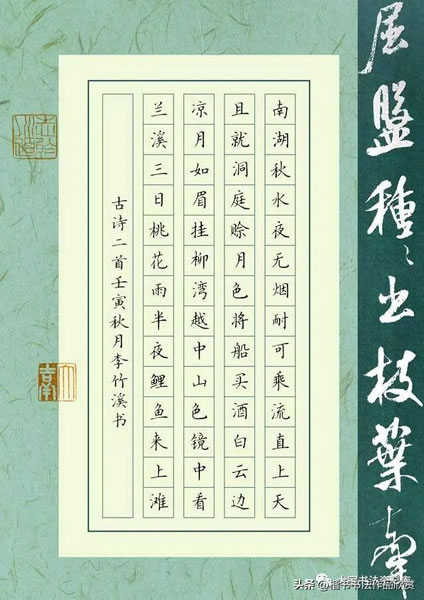 屈盤種〻出枝葉
南湖秋水夜无烟耐可乘流直上天
且就洞庭赊月色将船买酒白云边
凉月如眉挂柳湾越中山色镜中看
兰溪三日桃花雨半夜鲤鱼来上滩
古诗二首壬寅秋月李竹溪书
头条@楷书书法作品欣赏